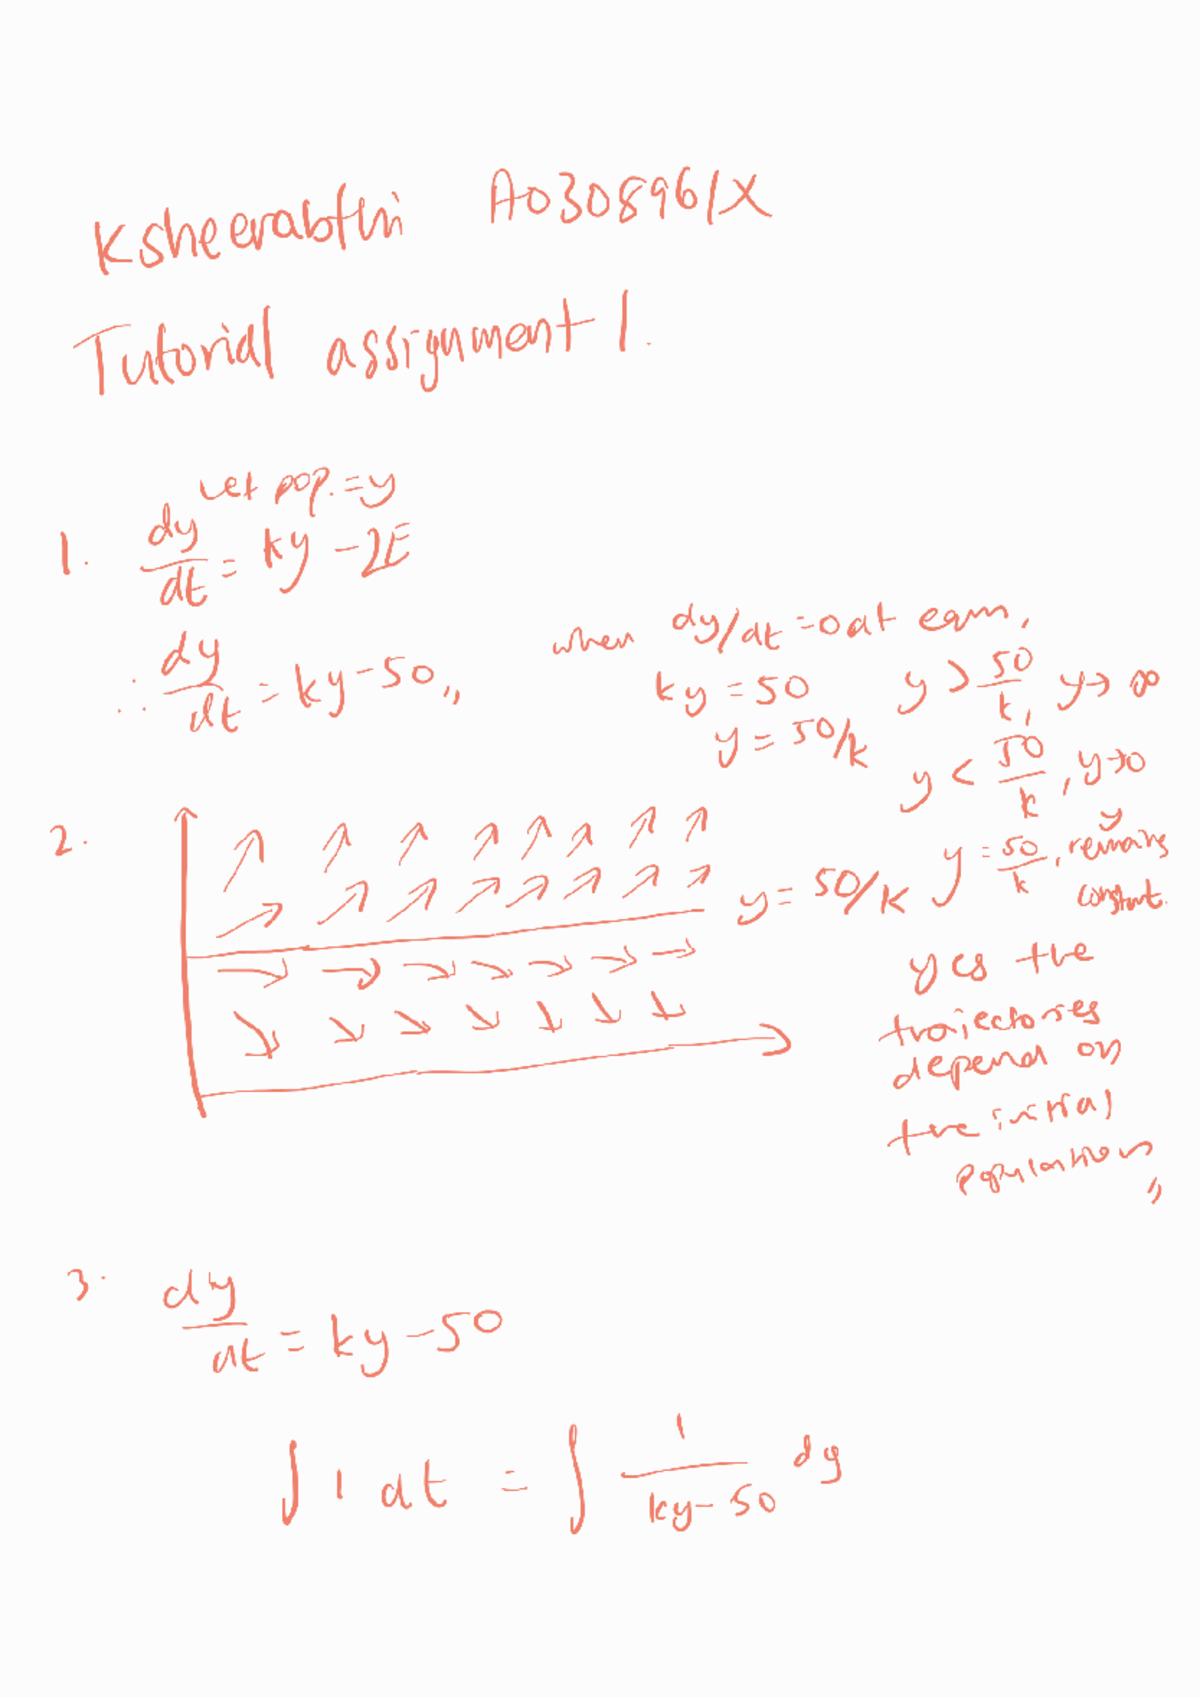 Ksheerabthi A0308961X
Tutorial assignment 1.
let pop. = y
1. dy/dt = ky - 2E
∴ dy/dt = ky - 50,,
when dy/dt = 0 at eqm,
ky = 50
y = 50/k
y > 50/k, y → ∞
y < 50/k, y → 0
y = 50/k, y remains constant.
2.
y = 50/k
yes the
trajectories
depend on
the initial
populations,,
3. dy/dt = ky - 50
∫ 1 dt = ∫ 1/(ky - 50) dy